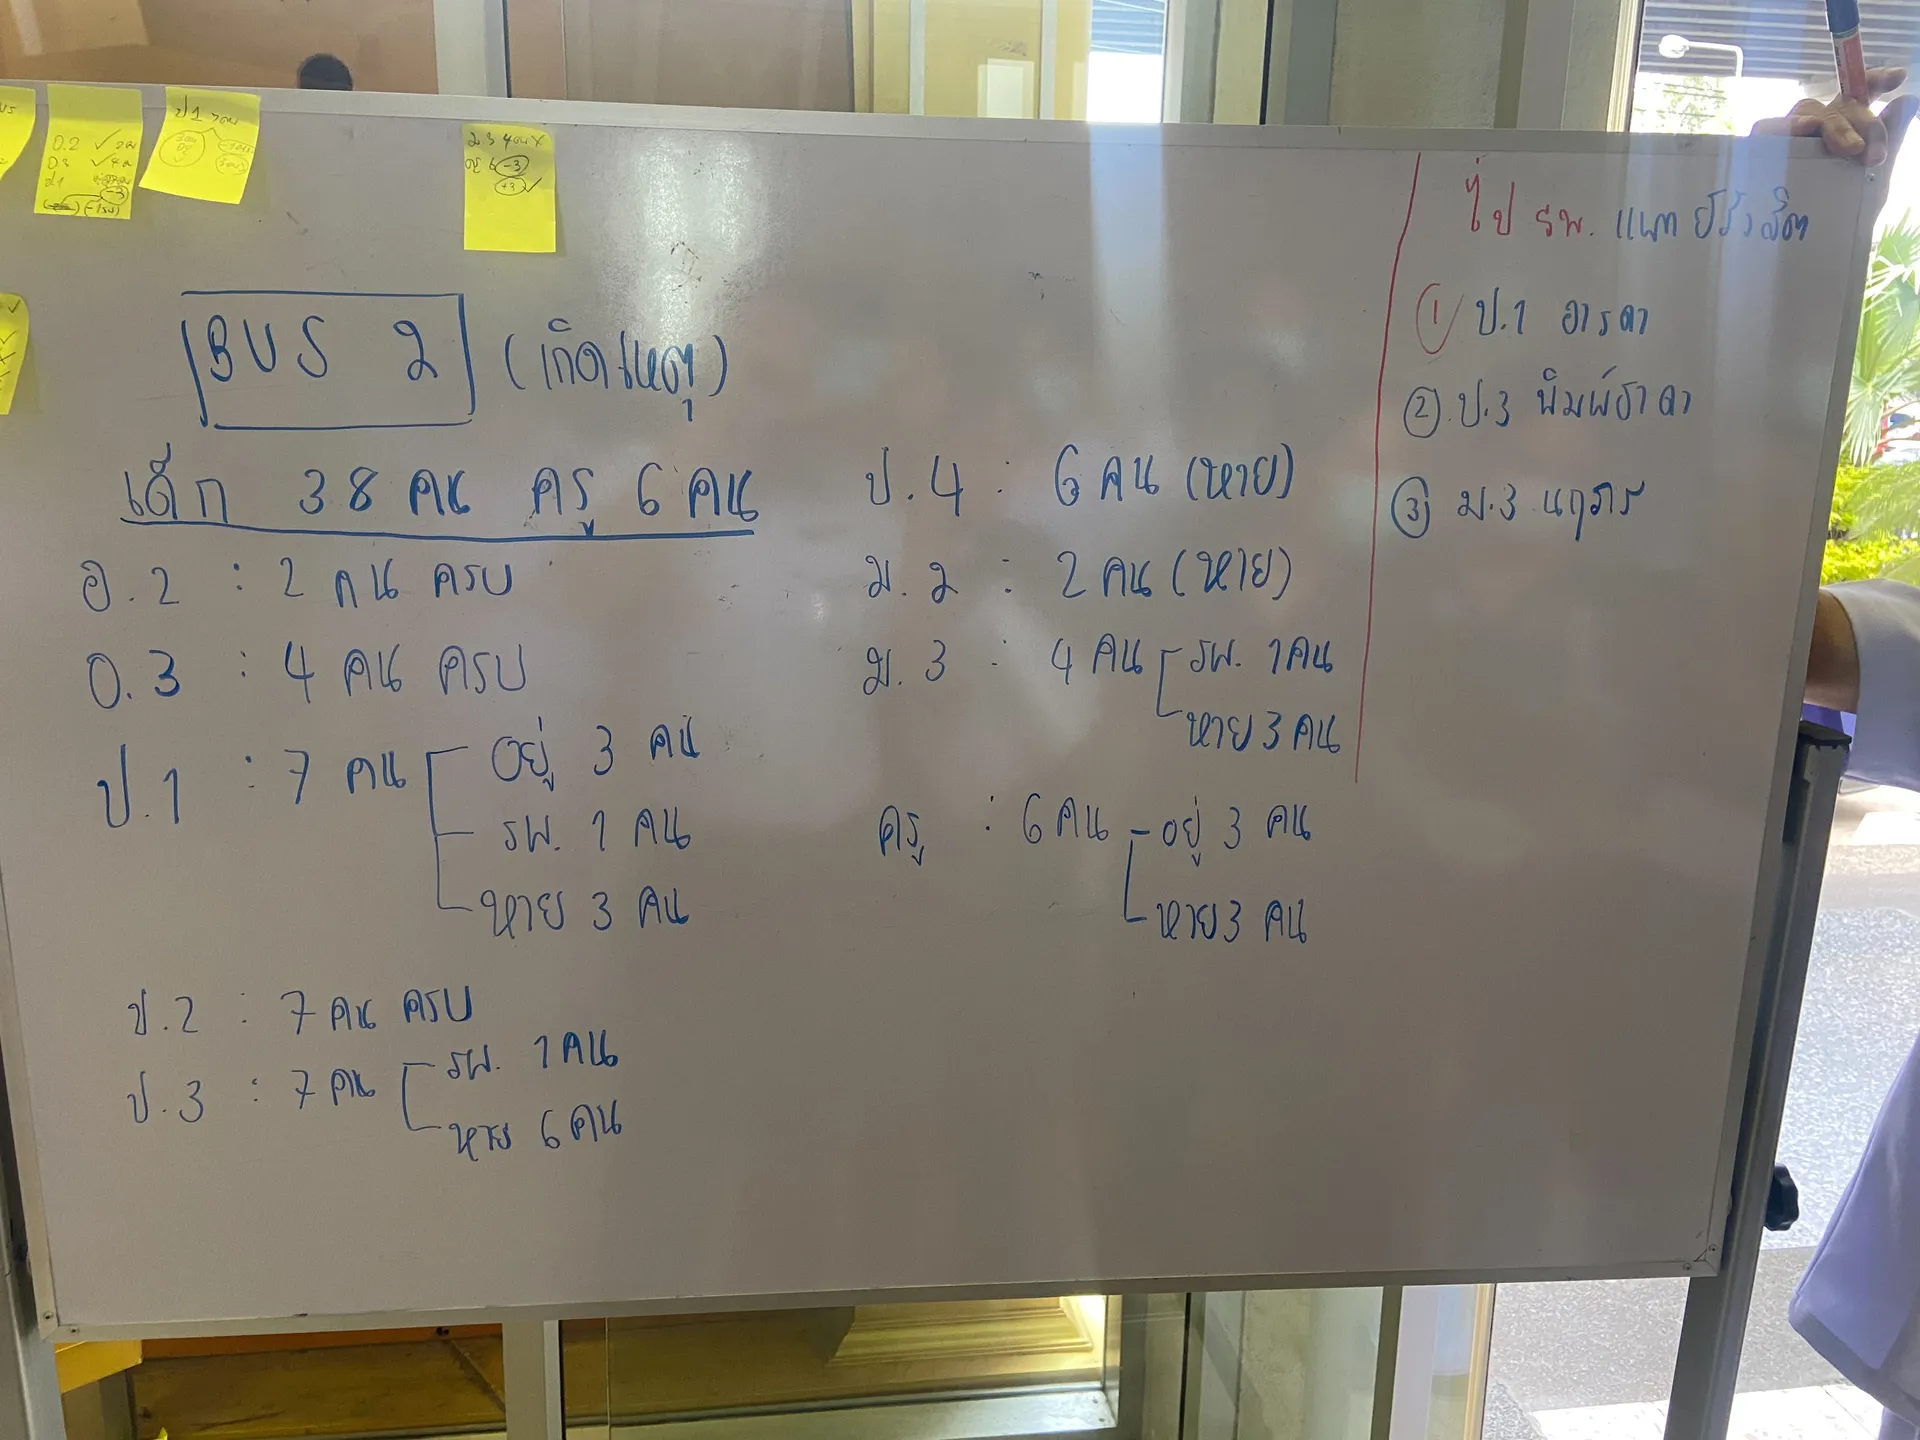 BUS 2 (เกิดเหตุ)
เด็ก 38 คน ครู 6 คน
อ.2 : 2 คน ครบ
อ.3 : 4 คน ครบ
ป.1 : 7 คน
อยู่ 3 คน
รพ. 1 คน
หาย 3 คน
ป.2 : 7 คน ครบ
ป.3 : 7 คน
รพ. 1 คน
หาย 6 คน
ป.4 : 6 คน (หาย)
ม.๒ : 2 คน (หาย)
ม.3 : 4 คน
รพ. 1 คน
หาย 3 คน
ครู : 6 คน
อยู่ 3 คน
หาย 3 คน
ไป รพ. แพทย์รังสิต
① ป.1 อารดา
② ป.3 พิมพ์ธาดา
③ ม.3